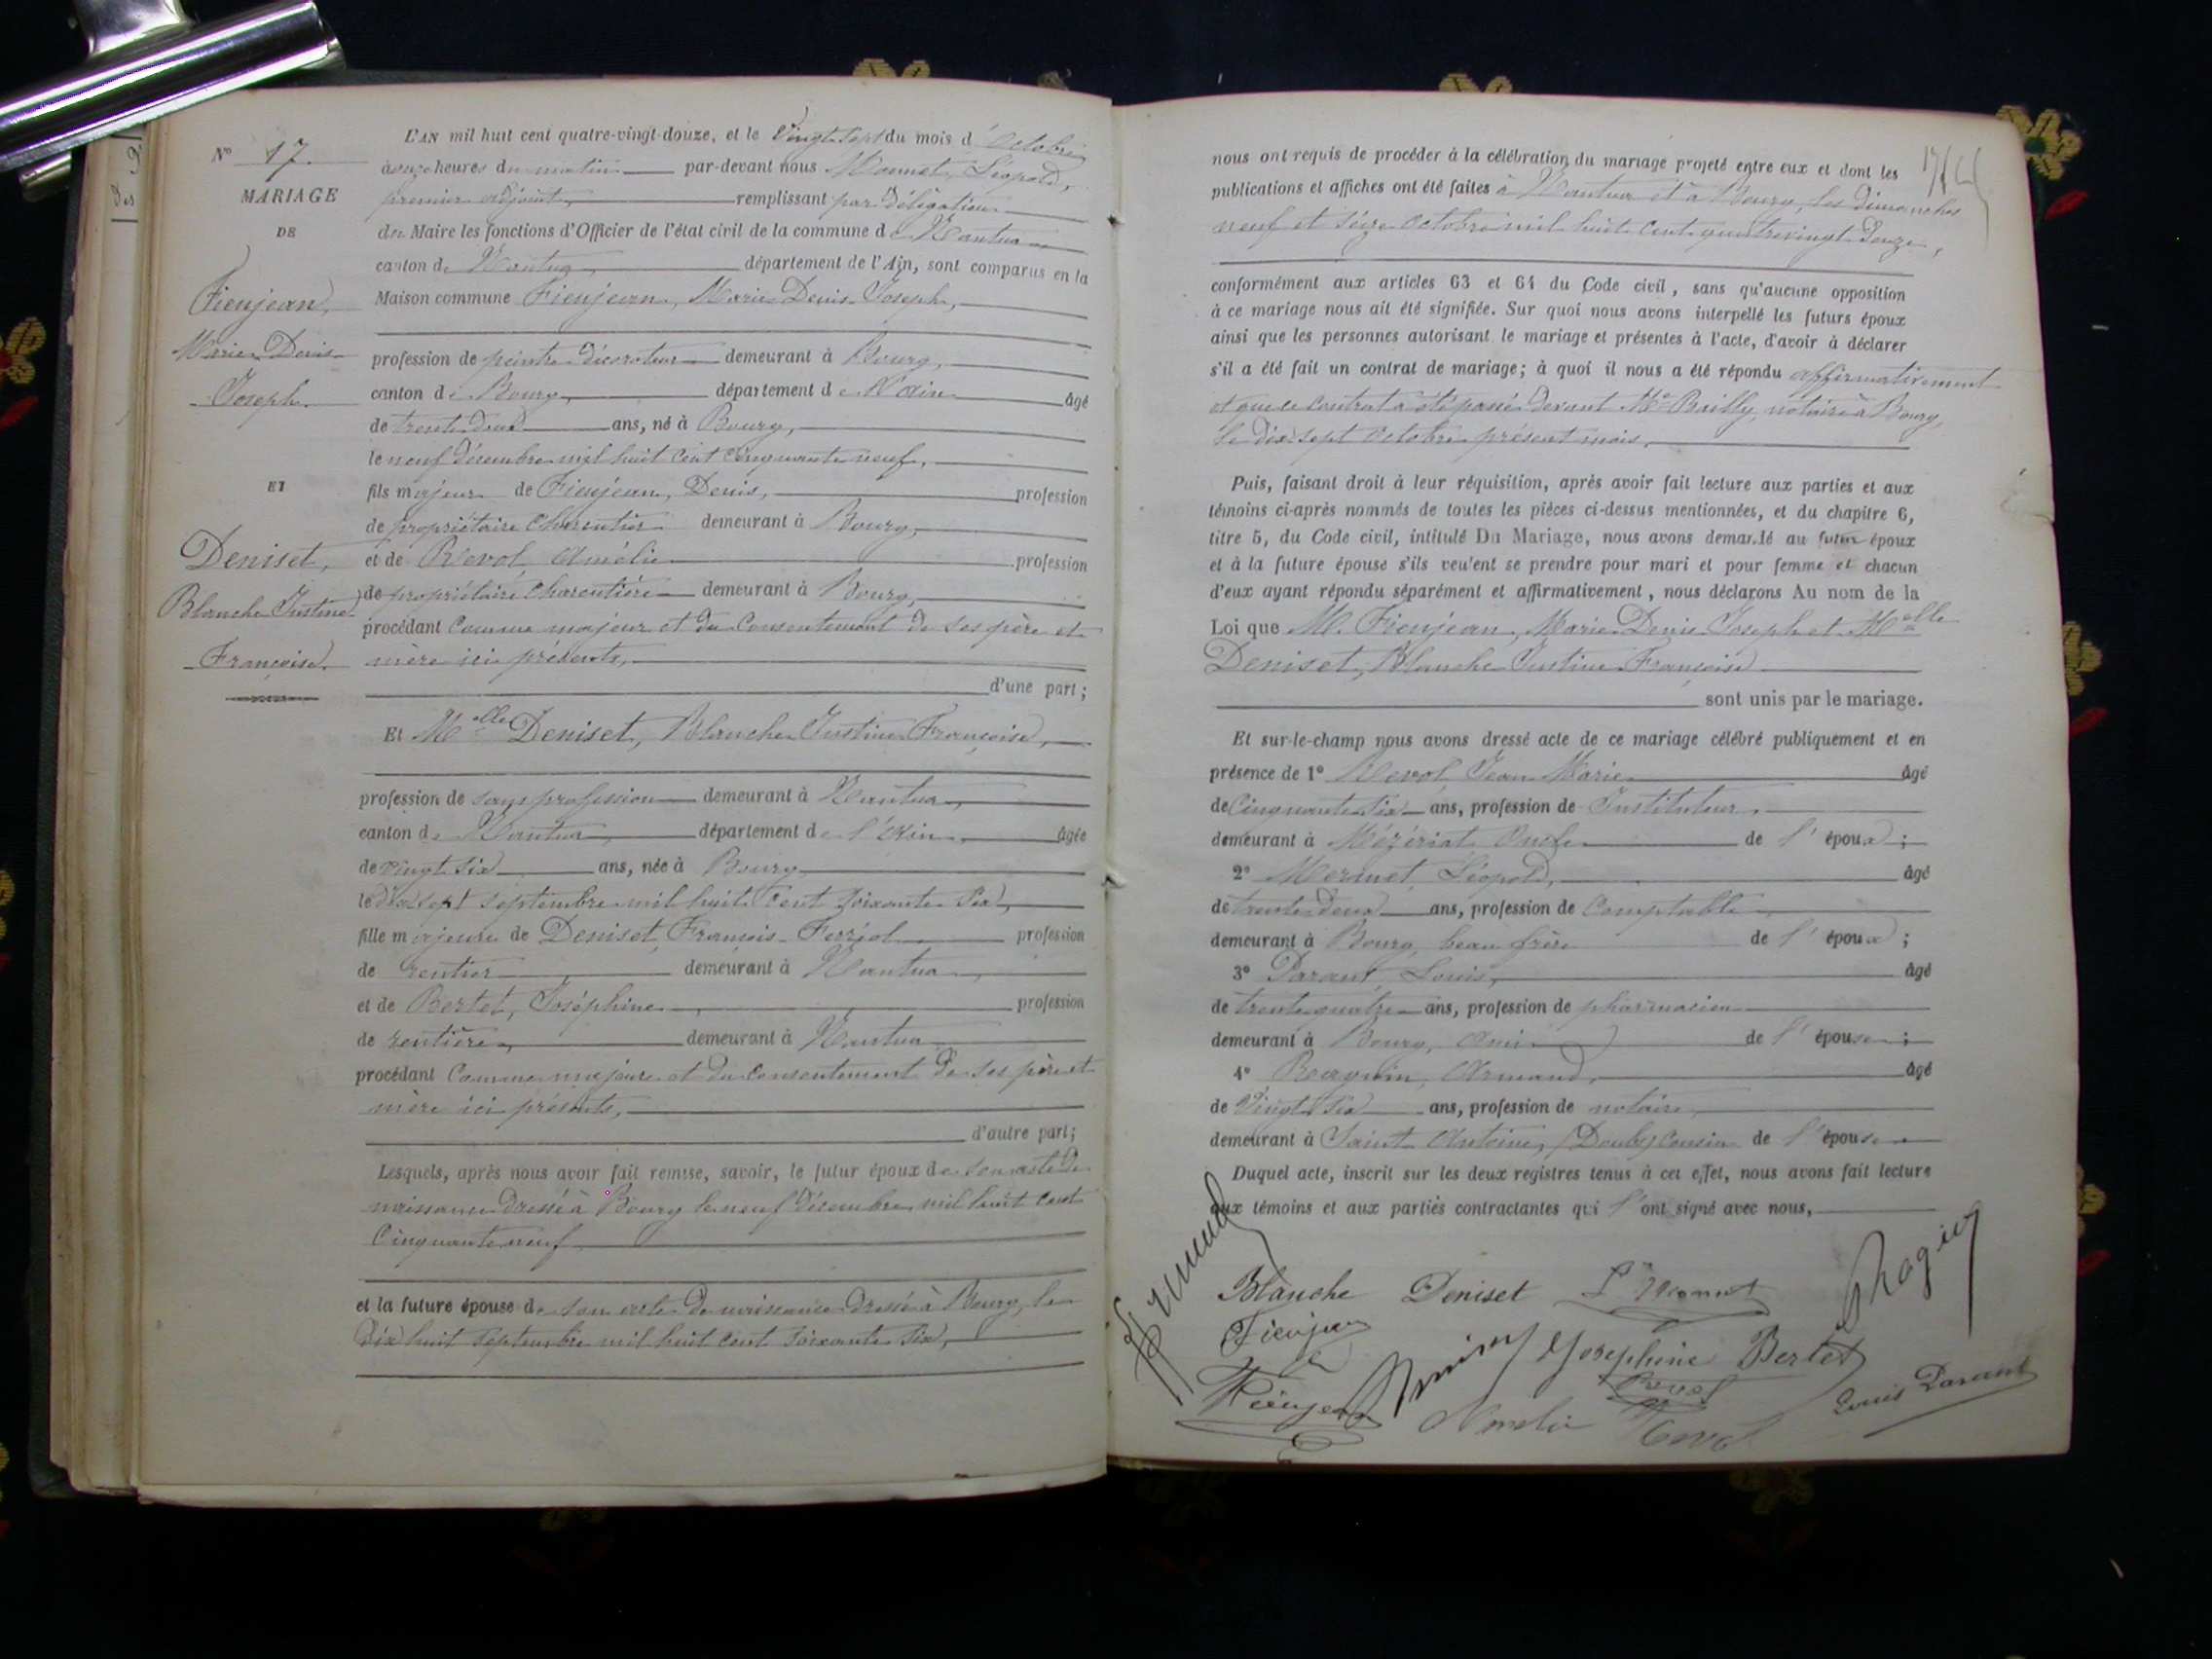 N° 17.
MARIAGE
DE
Fieujean,
Marie Denis
Joseph.
ET
Deniset,
Blanche Justine
Françoise.
L'AN mil huit cent quatre-vingt-douze, et le vingt sept du mois d'Octobre
à onze heures du matin par-devant nous Léopold,
premier adjoint, remplissant par délégation
du Maire les fonctions d'Officier de l'état civil de la commune de Nantua
canton de Nantua, département de l'Ain, sont comparus en la
Maison commune Fieujean, Marie Denis Joseph,
profession de peintre décorateur demeurant à Bourg,
canton de Bourg, département de l'Ain âgé
de trente deux ans, né à Bourg,
le neuf décembre mil huit cent cinquante neuf,
fils majeur de Fieujean, Denis, profession
de propriétaire charcutier demeurant à Bourg,
et de Revol, Amélie profession
de propriétaire charcutière demeurant à Bourg,
procédant comme majeur et du consentement de ses père et
mère ici présents,
d'une part;
Et Melle Deniset, Blanche Justine Françoise,
profession de sans profession demeurant à Nantua,
canton de Nantua, département de l'Ain, âgée
de vingt six ans, née à Bourg
le dix sept septembre mil huit cent soixante six,
fille majeure de Deniset, François Ferréol profession
de rentier, demeurant à Nantua,
et de Bertet, Joséphine, profession
de rentière, demeurant à Nantua
procédant comme majeure et du consentement de ses père et
mère ici présents,
d'autre part;
Lesquels, après nous avoir fait remise, savoir, le futur époux de son acte de
naissance dressé à Bourg le neuf décembre mil huit cent
cinquante neuf
et la future épouse de son acte de naissance dressé à Bourg, le
dix huit septembre mil huit cent soixante six,
nous ont requis de procéder à la célébration du mariage projeté entre eux et dont les
publications et affiches ont été faites à Nantua et à Bourg, les dimanches
neuf et seize octobre mil huit cent quatre vingt douze,
conformément aux articles 63 et 64 du Code civil, sans qu'aucune opposition
à ce mariage nous ait été signifiée. Sur quoi nous avons interpellé les futurs époux
ainsi que les personnes autorisant le mariage et présentes à l'acte, d'avoir à déclarer
s'il a été fait un contrat de mariage; à quoi il nous a été répondu affirmativement
et que ce contrat a été passé devant Me Bailly, notaire à Bourg,
le dix sept octobre présent mois.
Puis, faisant droit à leur réquisition, après avoir fait lecture aux parties et aux
témoins ci-après nommés de toutes les pièces ci-dessus mentionnées, et du chapitre 6,
titre 5, du Code civil, intitulé Du Mariage, nous avons demandé au futur époux
et à la future épouse s'ils veulent se prendre pour mari et pour femme et chacun
d'eux ayant répondu séparément et affirmativement, nous déclarons Au nom de la
Loi que M. Fieujean, Marie Denis Joseph et Melle
Deniset, Blanche Justine Françoise
sont unis par le mariage.
Et sur-le-champ nous avons dressé acte de ce mariage célébré publiquement et en
présence de 1° Revol, Jean Marie âgé
de cinquante six ans, profession de Instituteur,
demeurant à Mézériat Oncle de l'époux;
2° Léopold, âgé
de trente deux ans, profession de comptable
demeurant à Bourg, beau frère de l'époux;
3° Parant, Louis, âgé
de trente quatre ans, profession de pharmacien
demeurant à Bourg, ami de l'épouse;
4° Armand, âgé
de vingt six ans, profession de notaire
demeurant à Saint Antoine, (Doubs) cousin de l'épouse
Duquel acte, inscrit sur les deux registres tenus à cet effet, nous avons fait lecture
aux témoins et aux parties contractantes qui l'ont signé avec nous,
Blanche Deniset
Fieujean
Joséphine Bertet
Fieujean
Amélie Revol
Revol
Louis Parant